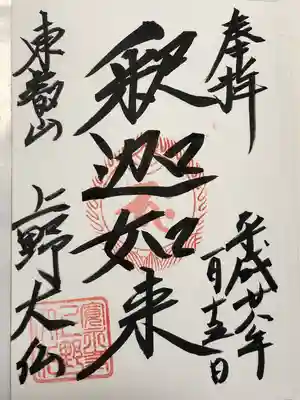 奉拝
平成廿八年
一月十五日
釈迦如来
東叡山
上野大仏